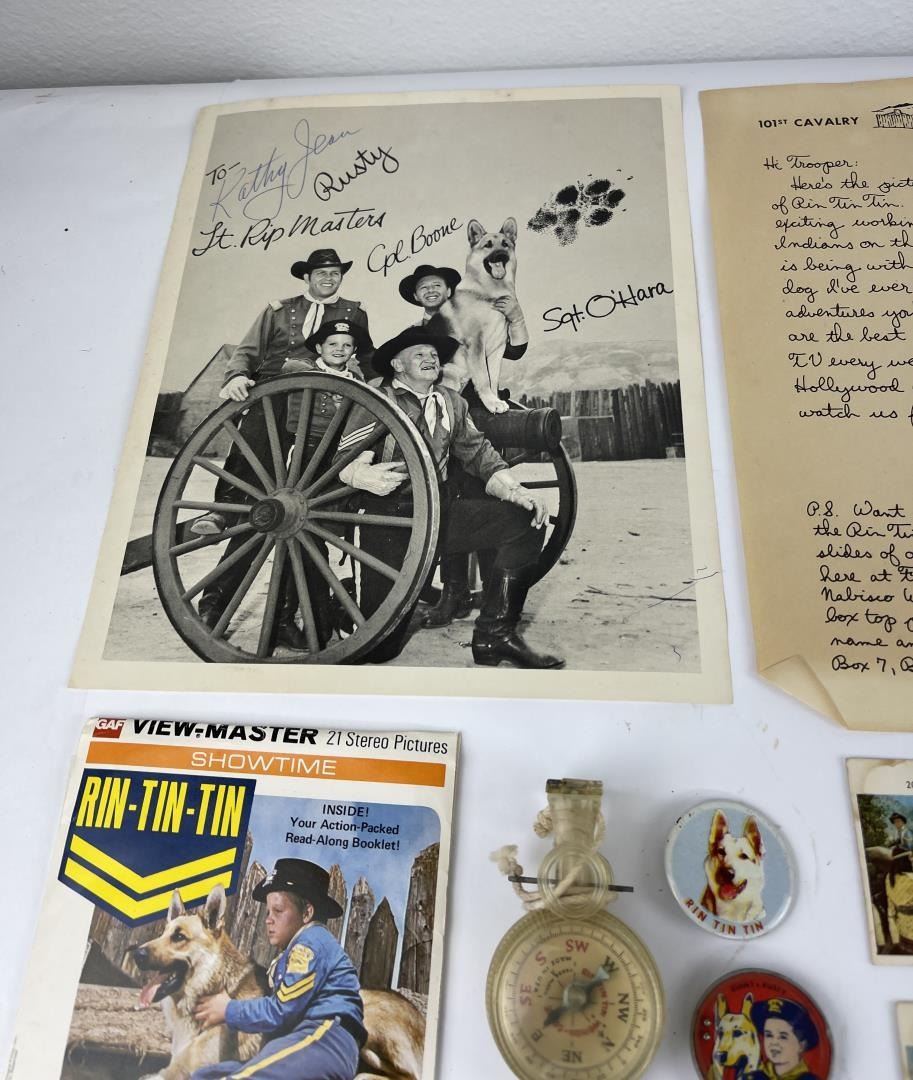 To-
Kathy Jean
Rusty
Lt. Rip Masters
Cpl. Boone
Sgt. O'Hara
101ST CAVALRY
Hi Trooper:
Here's the
of Rin Tin Tin.
exciting working
Indians on
is being with
dog I've ever
adventures
are the best
TV every
Hollywood
watch us
P.S. Want
the Rin
slides of
here at
Nabisco
box top
name
Box 7,
GAF VIEW-MASTER 21 Stereo Pictures
SHOWTIME
RIN-TIN-TIN
INSIDE!
Your Action-Packed
Read-Along Booklet!
S SW W
SE NW
E N
NE
RIN TIN TIN